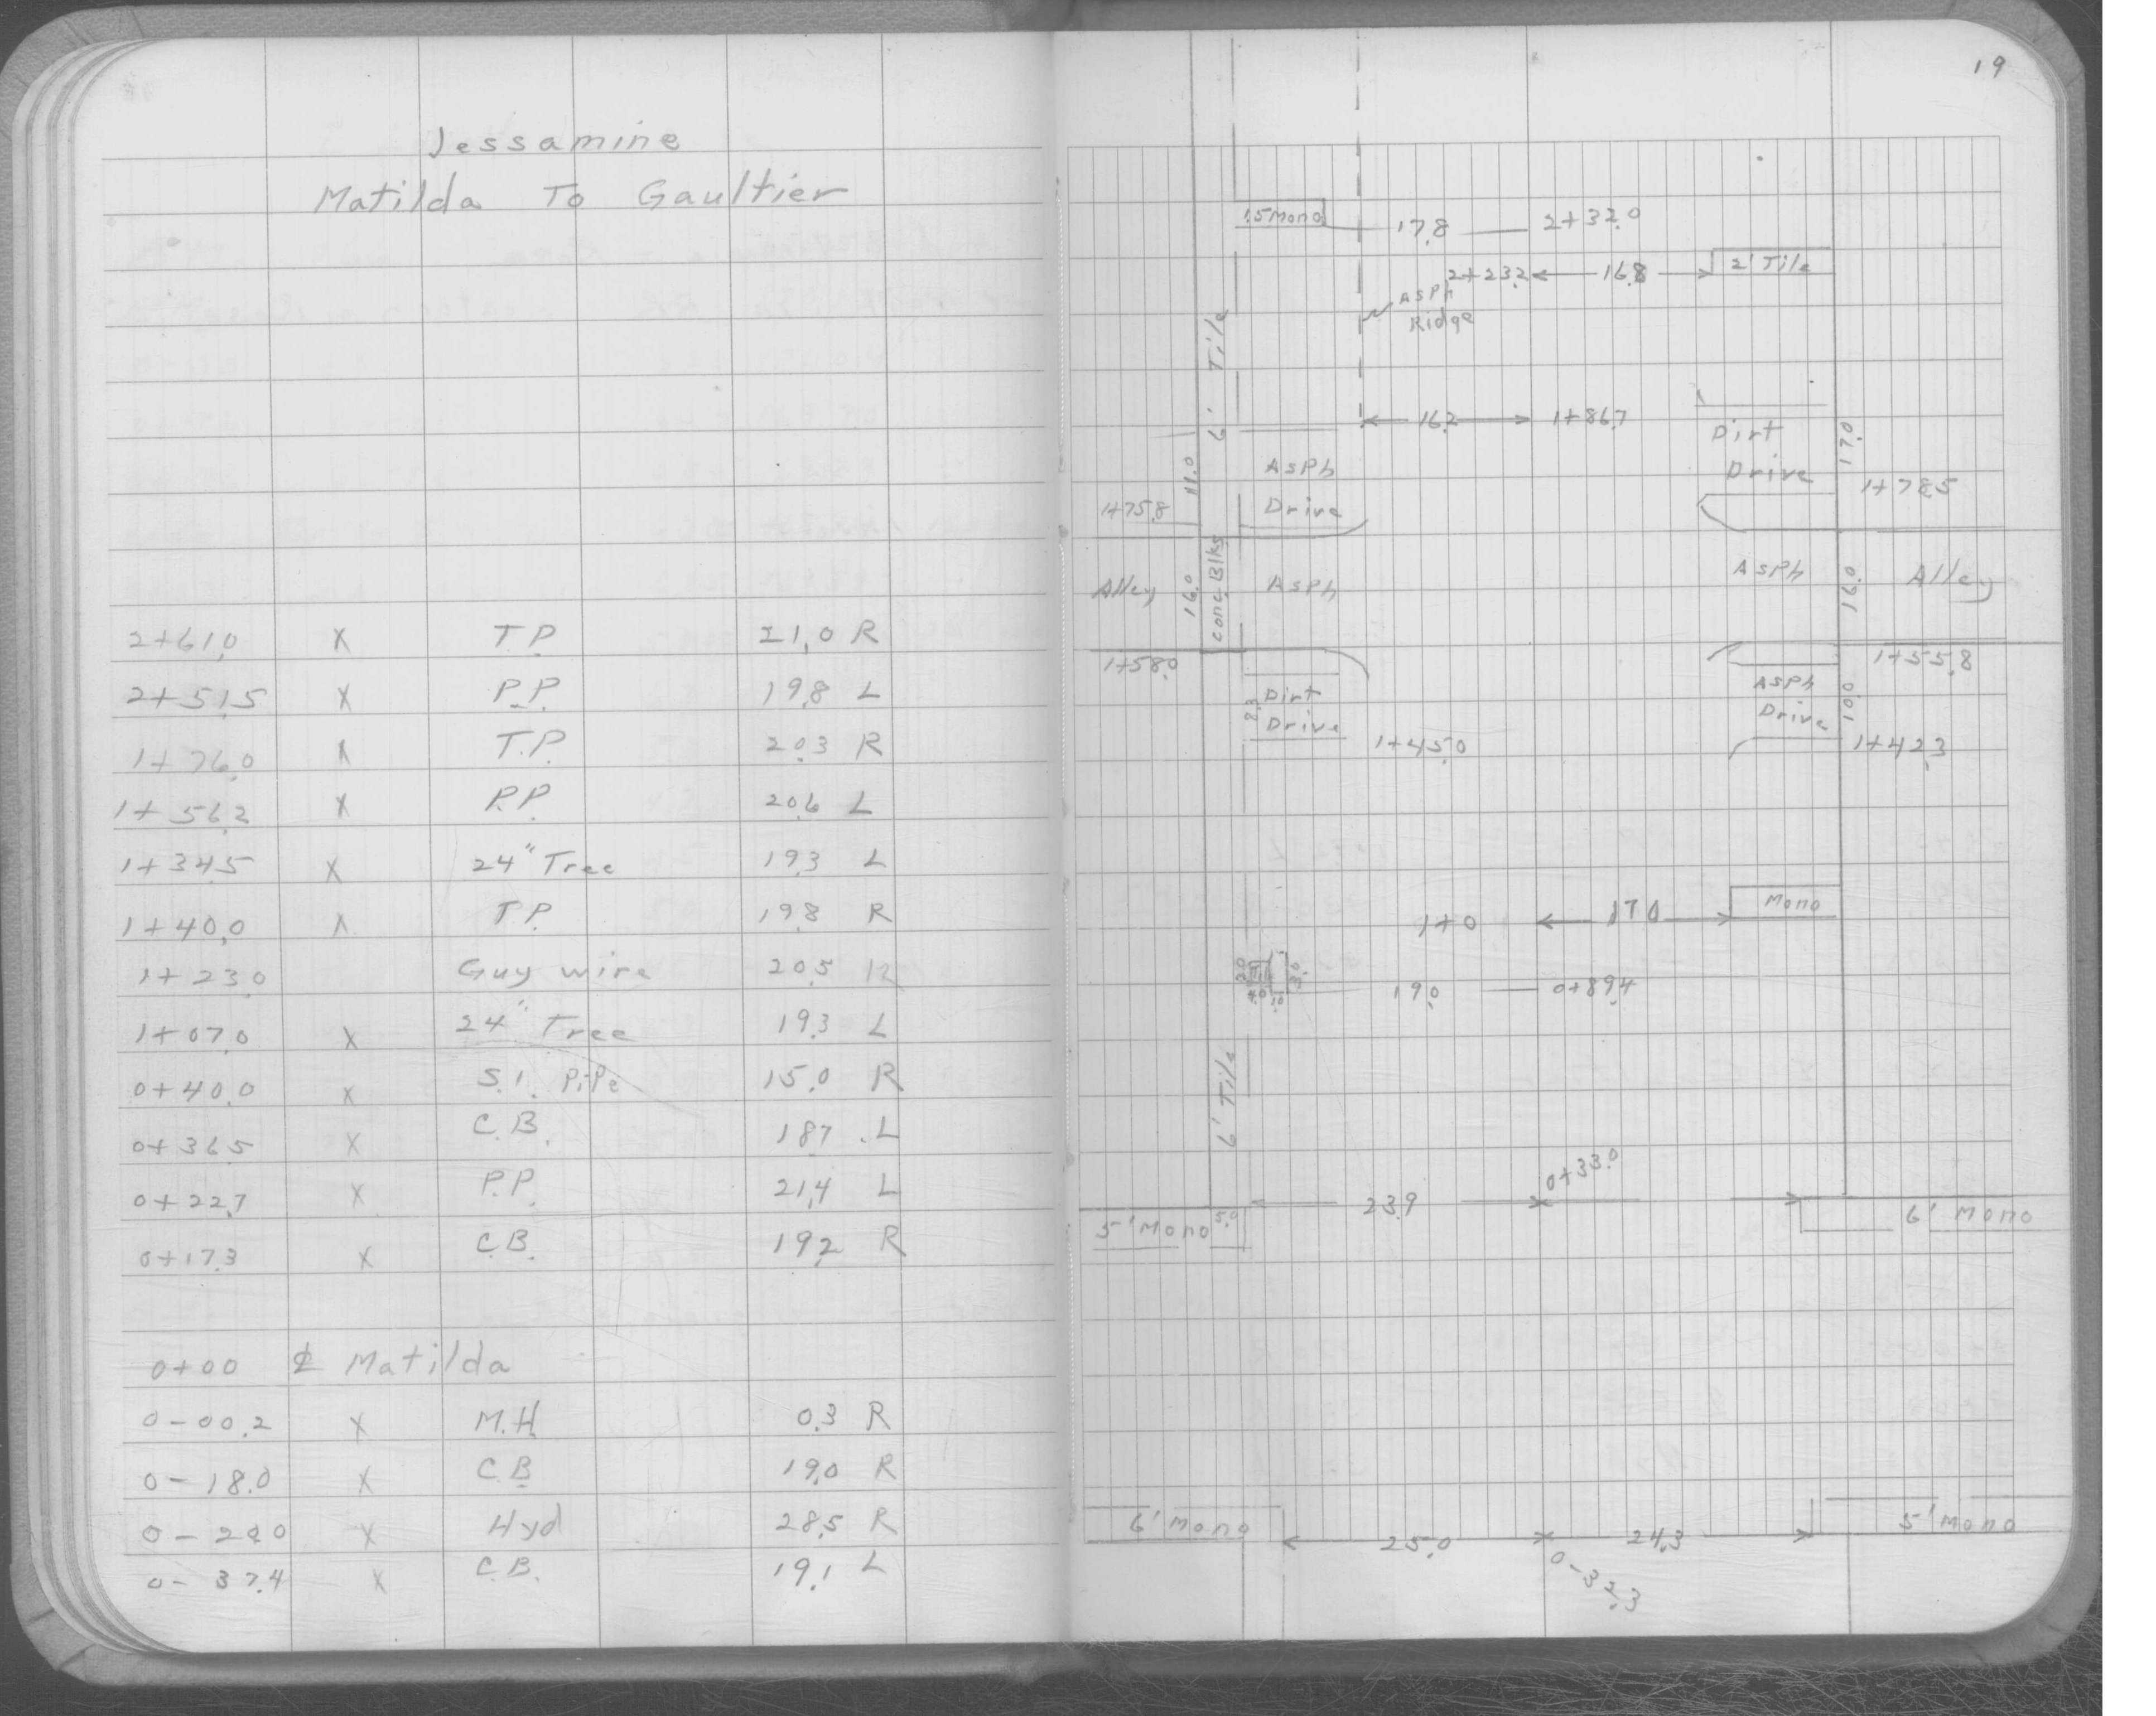 Jessamine
Matilda To Gaultier
2+61.0 X T.P. 21.0 R
2+51.5 X P.P. 19.8 L
1+76.0 X T.P. 20.3 R
1+56.2 X P.P. 20.6 L
1+34.5 X 24" Tree 19.3 L
1+40.0 X T.P. 19.8 R
1+23.0 Guy wire 20.5 R
1+07.0 X 24" Tree 19.3 L
0+40.0 X S.I. Pipe 15.0 R
0+36.5 X C.B. 18.7 L
0+22.7 X P.P. 21.4 L
0+17.3 X C.B. 19.2 R
0+00 ℄ Matilda
0-00.2 X M.H. 0.3 R
0-18.0 X C.B 19.0 R
X Hyd 28.5 R
0-37.4 X C.B. 19.1 L
19
1.5 Mono 17.8 2+32.0
2+23.2 16.8 2' Tile
Asph
Ridge
6' Tile
16.2 1+86.7
Dirt
Drive
17.0
1+78.5
11.0
Asph
Drive
1+75.8
Alley 16.0 Conc. Blks Asph
Asph 16.0 Alley
1+58.0
1+55.8
8.3 Dirt
Drive
1+45.0
Asph
Drive
10.0
1+42.3
1+0 17.0 Mono
2.0 4.0 1.0 3.0
19.0 0+89.4
6' Tile
0+33.0
23.9
5' Mono 5.0
6' Mono
6' Mono 25.0 24.3 5' Mono
0-32.3